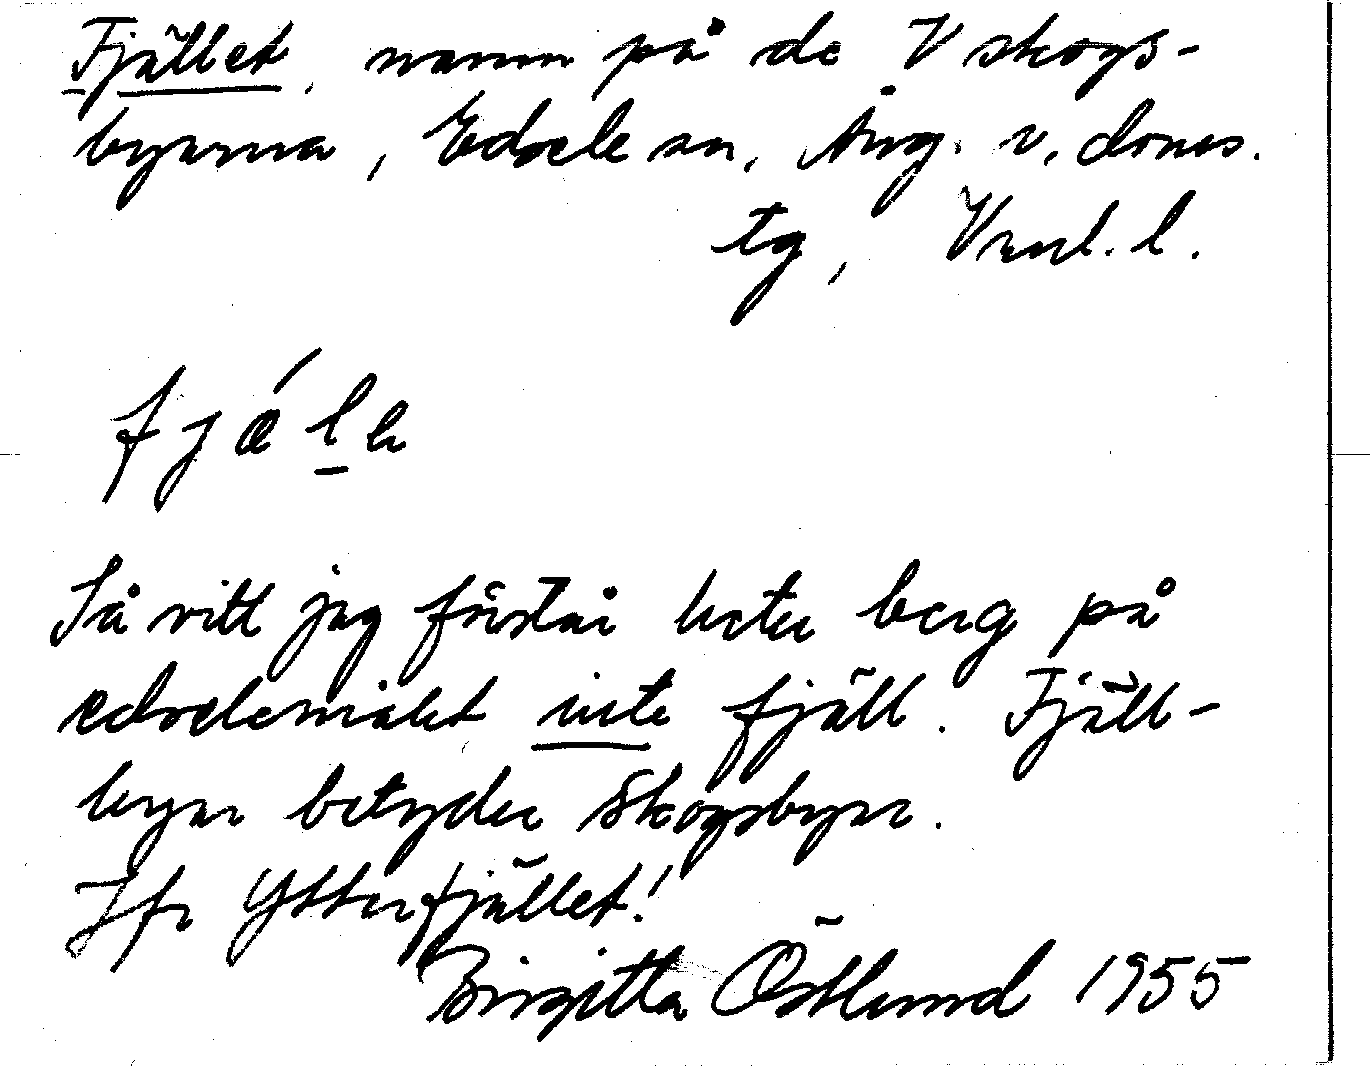 Fjället, namn på de V skogs-
byarna, Edsele sn, Ång. v. doms.
tg, Vnrl. l.
fjǽle
Så vitt jag förstår heter berg på
edselemålet inte fjäll. Fjäll-
byar betyder skogsbyar.
Jfr Ytterfjället!
Birgitta Östlund 1955